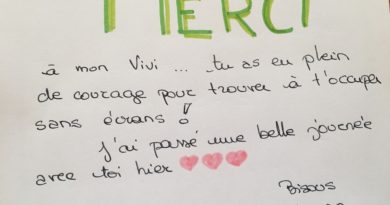 MERCI
à mon Vivi ... tu as eu plein
de courage pour trouver à t'occuper
sans écrans !
J'ai passé une belle journée
avec toi hier ♥♥♥
Bisous